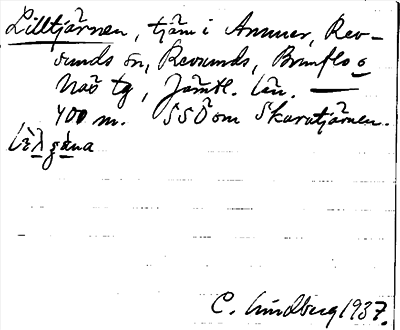 Lilltjärnen, tjärn i Ammer, Rev-
sunds sn, Revsunds, Brunflo o
Näs tg, Jämtl. län. —
400 m. SSÖ om Skavatjärnen.
C. Lindberg 1937.